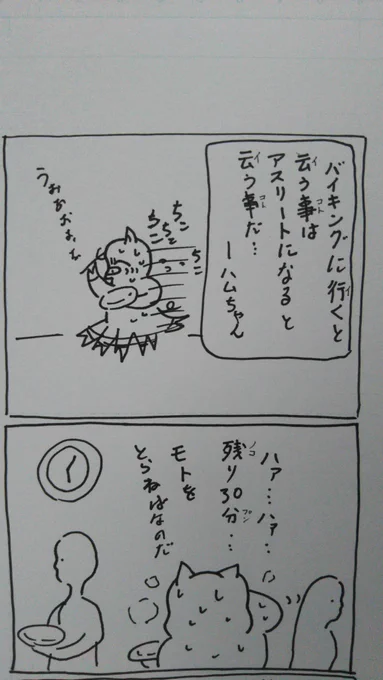 バイキングに行くと
云う事は
アスリートになると
云う事だ…
ーハムちゃん
ちこ
ちこ
ちこ
ちこ
うおおおおお
ハァ…ハァ…
残り30分…
モトを
とらねばなのだ